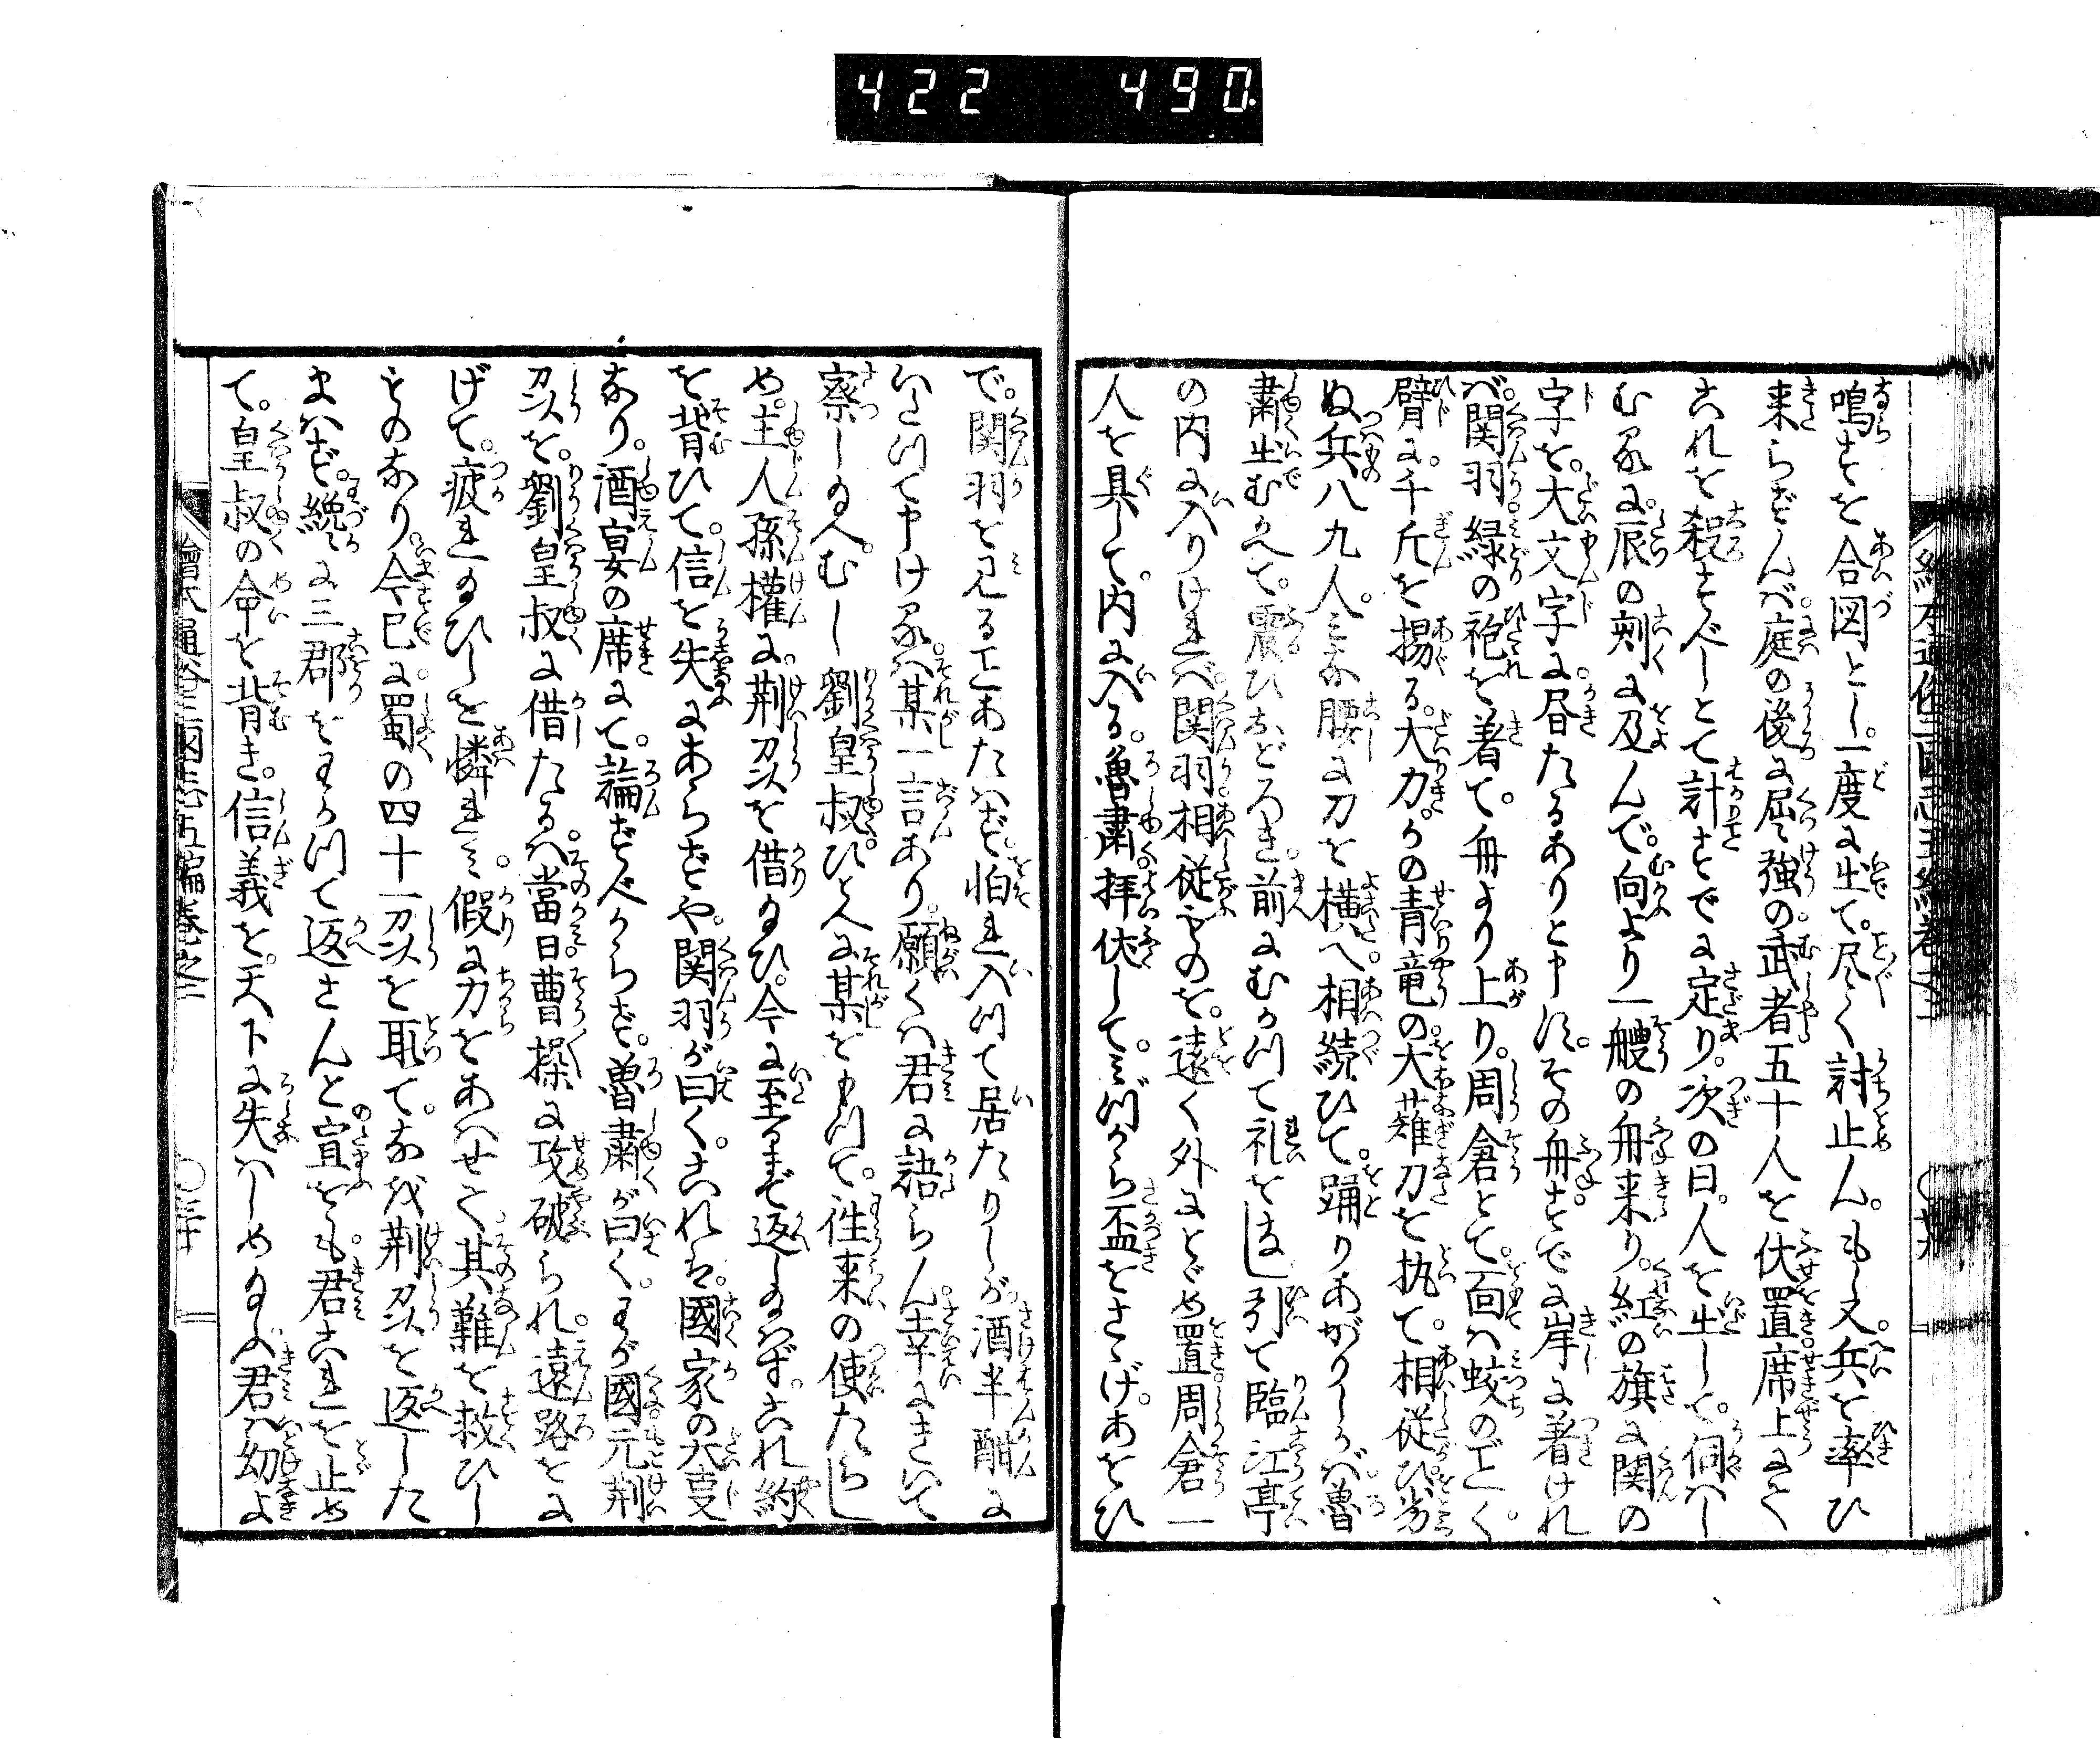 422 490
鳴すを合図とし。一度に出て。尽く討止ん。もし又。兵を率ひ
来らずんば。庭の後に屈強の。武者五十人を伏置。席上にて
これを殺すべしとて計すでに定り。次の日。人を出して。伺へし
むるに。辰の刻に及んで。向より一艘の舟来り。紅の旗に関の
字を。大文字に。書たるありと申す。その舟すでに岸に着けれ
ば。関羽。緑の袍を着て。舟より上り。周倉とて。面は蛟のごとく。
臂に。千斤を揚る。大力。かの青竜の。大薙刀を執て。相従ひ。労
ぬ兵八九人。みな腰に刀を横へ。相続ひて。踊りあがりしかば。魯
粛出むかへて。震ひおどろき。前にむかつて礼をなし引て臨江亭
の内に入りければ。関羽。相従ものを。遠く外にとゞめ置。周倉一
人を具して。内に入る。魯粛。拝伏して。みづから盃をさゝげ。あをひ
で。関羽を見ることあたはず。怕れ入つて居たりしが。酒半酣に
いたつて申けるは。某一言あり。願くは君に語らん。幸にきいて
察し給へ。むし劉皇叔。ひとへに某をもつて。往来の使たらし
め。主人孫権に。荊州を借給ひ。今に至るまで返し給はず。これ約
を背ひて。信を失にあらずや。関羽が曰く。これは。國家の大事
なり。酒宴の席にて。論ずべからず。魯粛が曰く。わが國元荊
州を。劉皇叔に借たるは。當日曹操に攻破られ。遠路をに
げて。疲れ給ひしを憐れみ。假に力をあはせて。其難を救ひし
ものなり。今已に。蜀の四十一州を取て。なほ荊州を返した
まはず。纔に三郡をわかつて返さんと宣ども。君これを止め
て。皇叔の命を背き。信義を。天下に失はしめ給ふ。君は幼よ
繪本通俗三國志五編巻之二